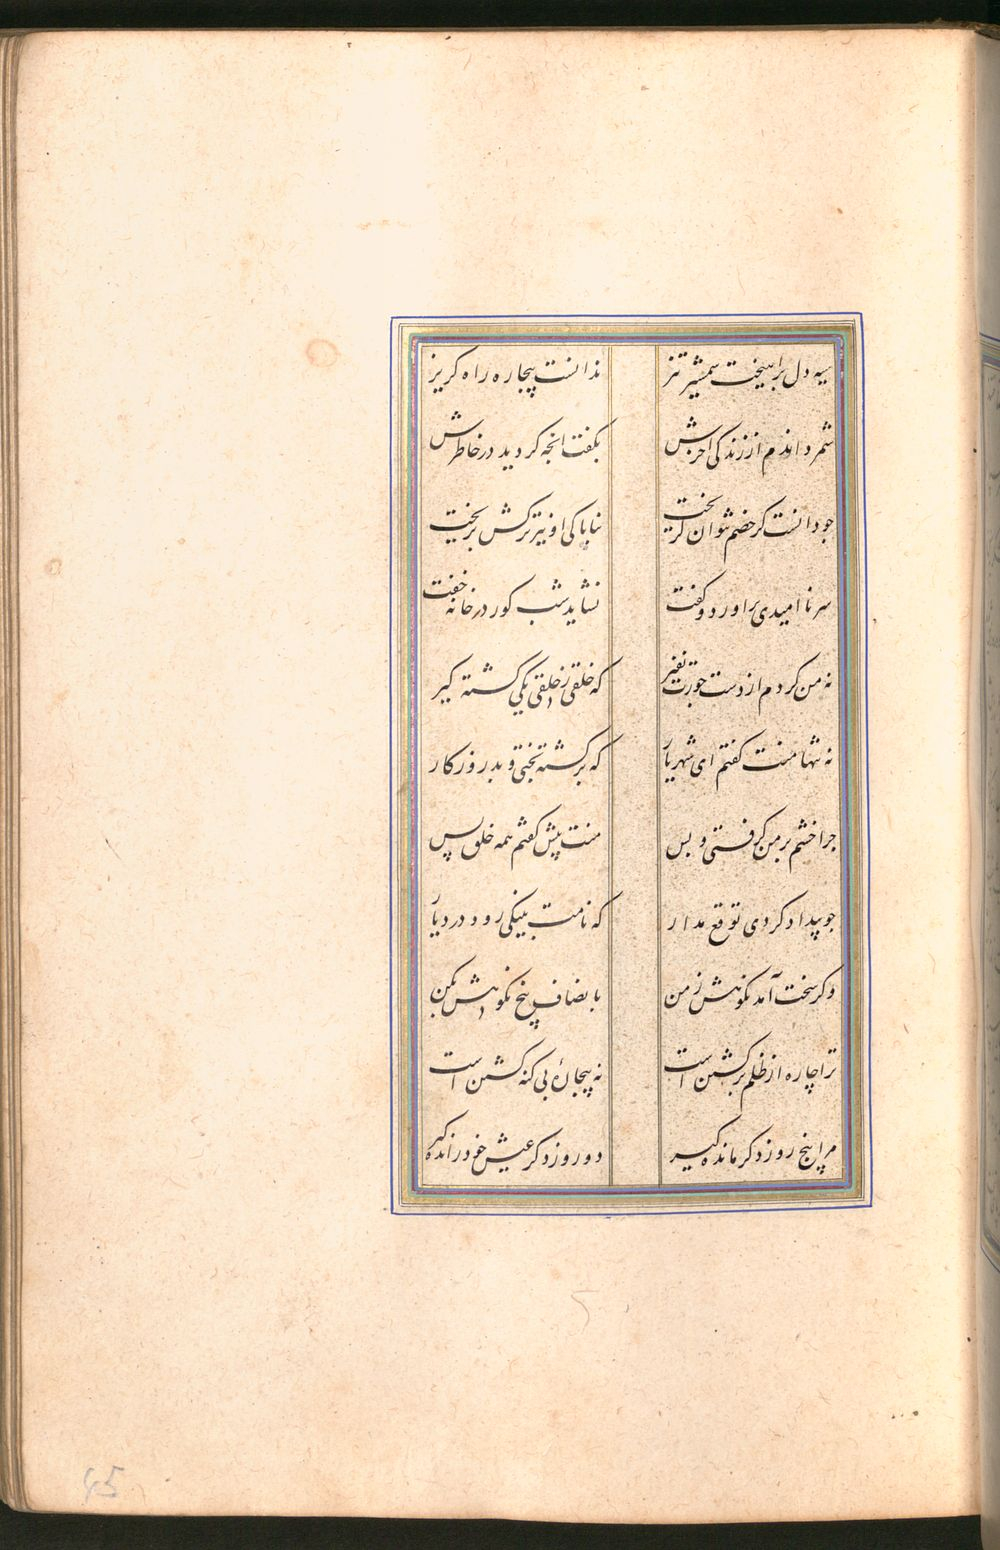 سیه دل برآهیخت شمشیر تیز
ندانست بیچاره راه گریز
شمرد آندم از زندگی آخرش
بگفت آنچه گردید در خاطرش
چو دانست کز خصم نتوان گریخت
بناپاکی او تیر ترکش بریخت
سر ناامیدی براورد و گفت
نشاید شب گور در خانه خفت
نه من کردم از دست جورت نفیر
که خلقی ز خلقی یکی کشته گیر
نه تنها منت گفتم ای شهریار
که برگشته بختی و بد روزگار
چرا خشم بر من گرفتی و بس
منت پیش گفتم همه خلق پس
چو بیداد کردی توقع مدار
که نامت بنیکی رود در دیار
وگر سخت آمد نکوهش ز من
بانصاف بیخ نکوهش بکن
ترا چاره از ظلم برگشتن است
نه بیچارهٔ بی گنه کشتن است
مرا پنج روز دگر مانده گیر
دو روز دگر عیش خود رانده گیر
45